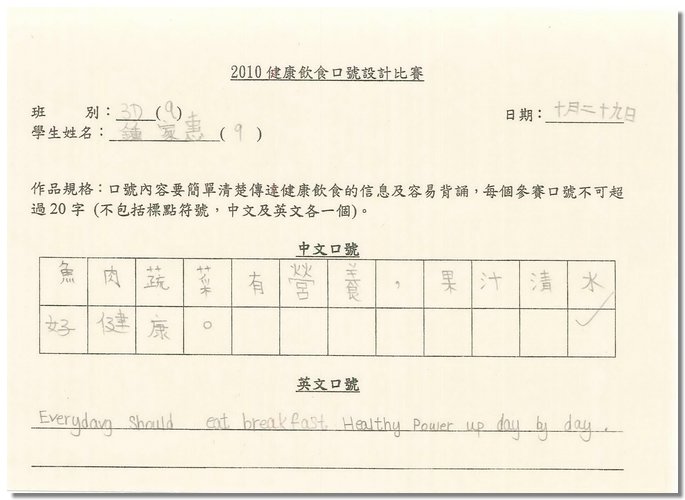 2010 健康飲食口號設計比賽
班 別：3D (9) 日期：十月二十九日
學生姓名：鍾家惠 ( 9 )
作品規格：口號內容要簡單清楚傳達健康飲食的信息及容易背誦，每個參賽口號不可超
過 20 字 (不包括標點符號，中文及英文各一個)。
中文口號
魚肉蔬菜有營養，果汁清水
好健康。
英文口號
Everydayg should eat breakfast Healthy Power up day by day .